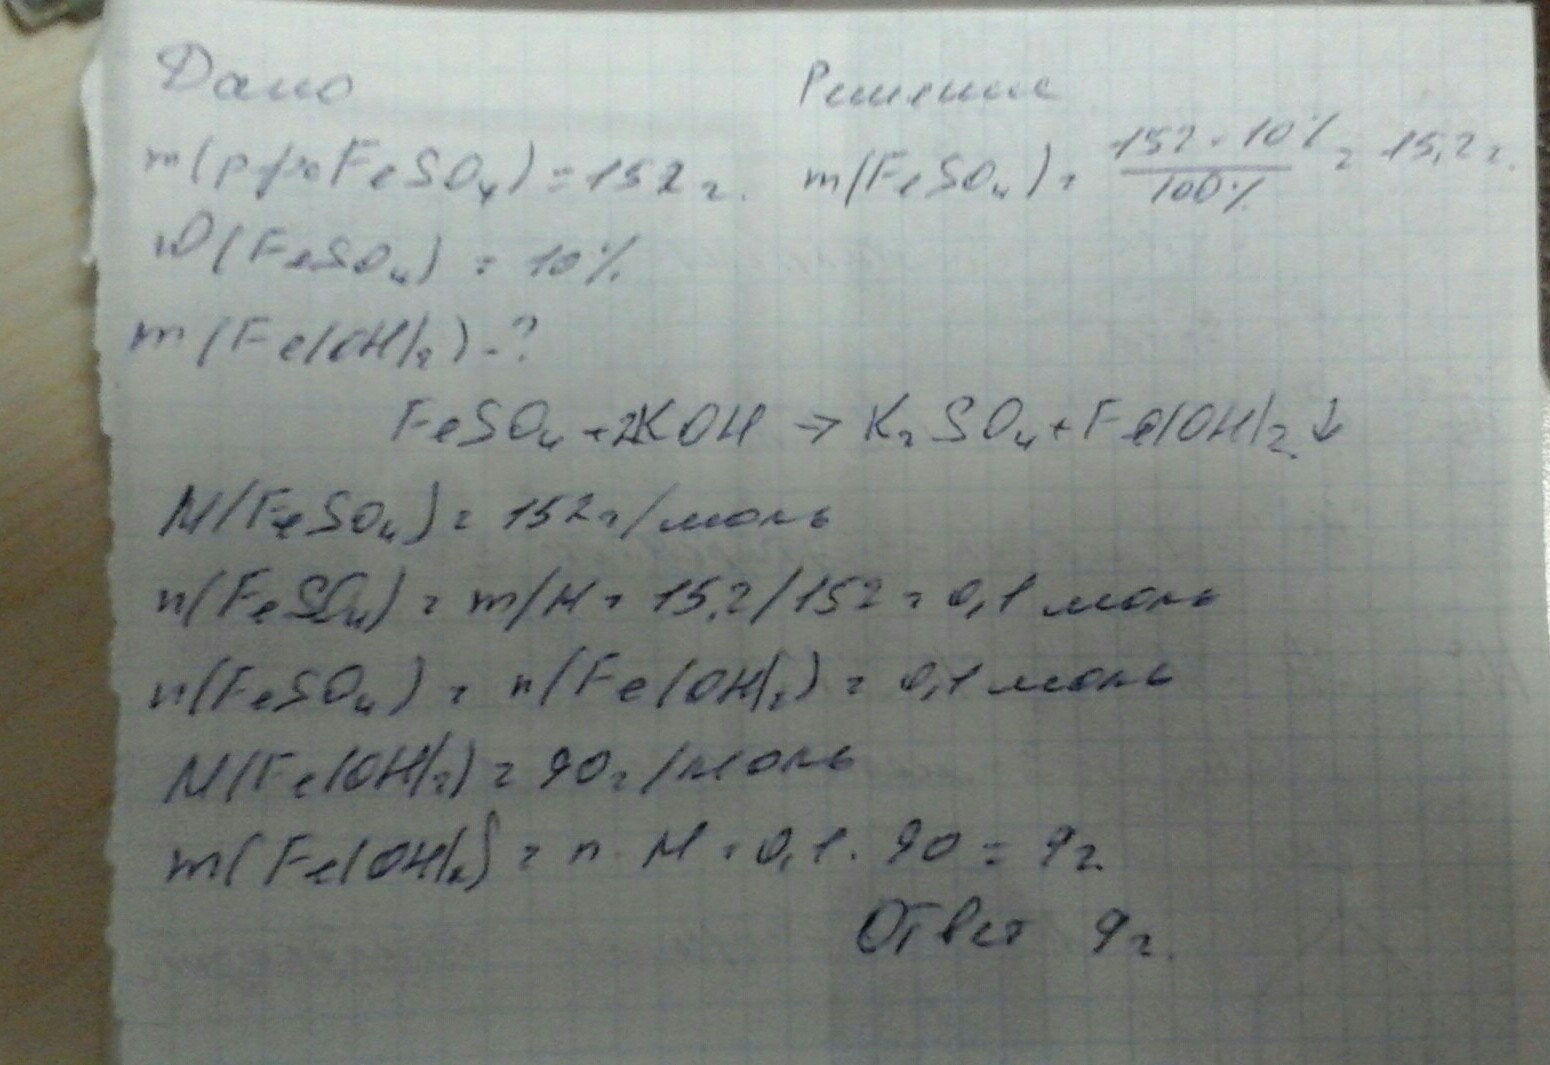 Дано
Решение
m(р-ра FeSO₄) = 152 г.
m(FeSO₄) = 152 · 10% / 100% = 15,2 г.
ω(FeSO₄) = 10%
m(Fe(OH)₂) - ?
FeSO₄ + 2KOH → K₂SO₄ + Fe(OH)₂↓
M(FeSO₄) = 152 г/моль
n(FeSO₄) = m/M = 15,2/152 = 0,1 моль
n(FeSO₄) = n(Fe(OH)₂) = 0,1 моль
M(Fe(OH)₂) = 90 г/моль
m(Fe(OH)₂) = n · M = 0,1 · 90 = 9 г.
Ответ 9 г.